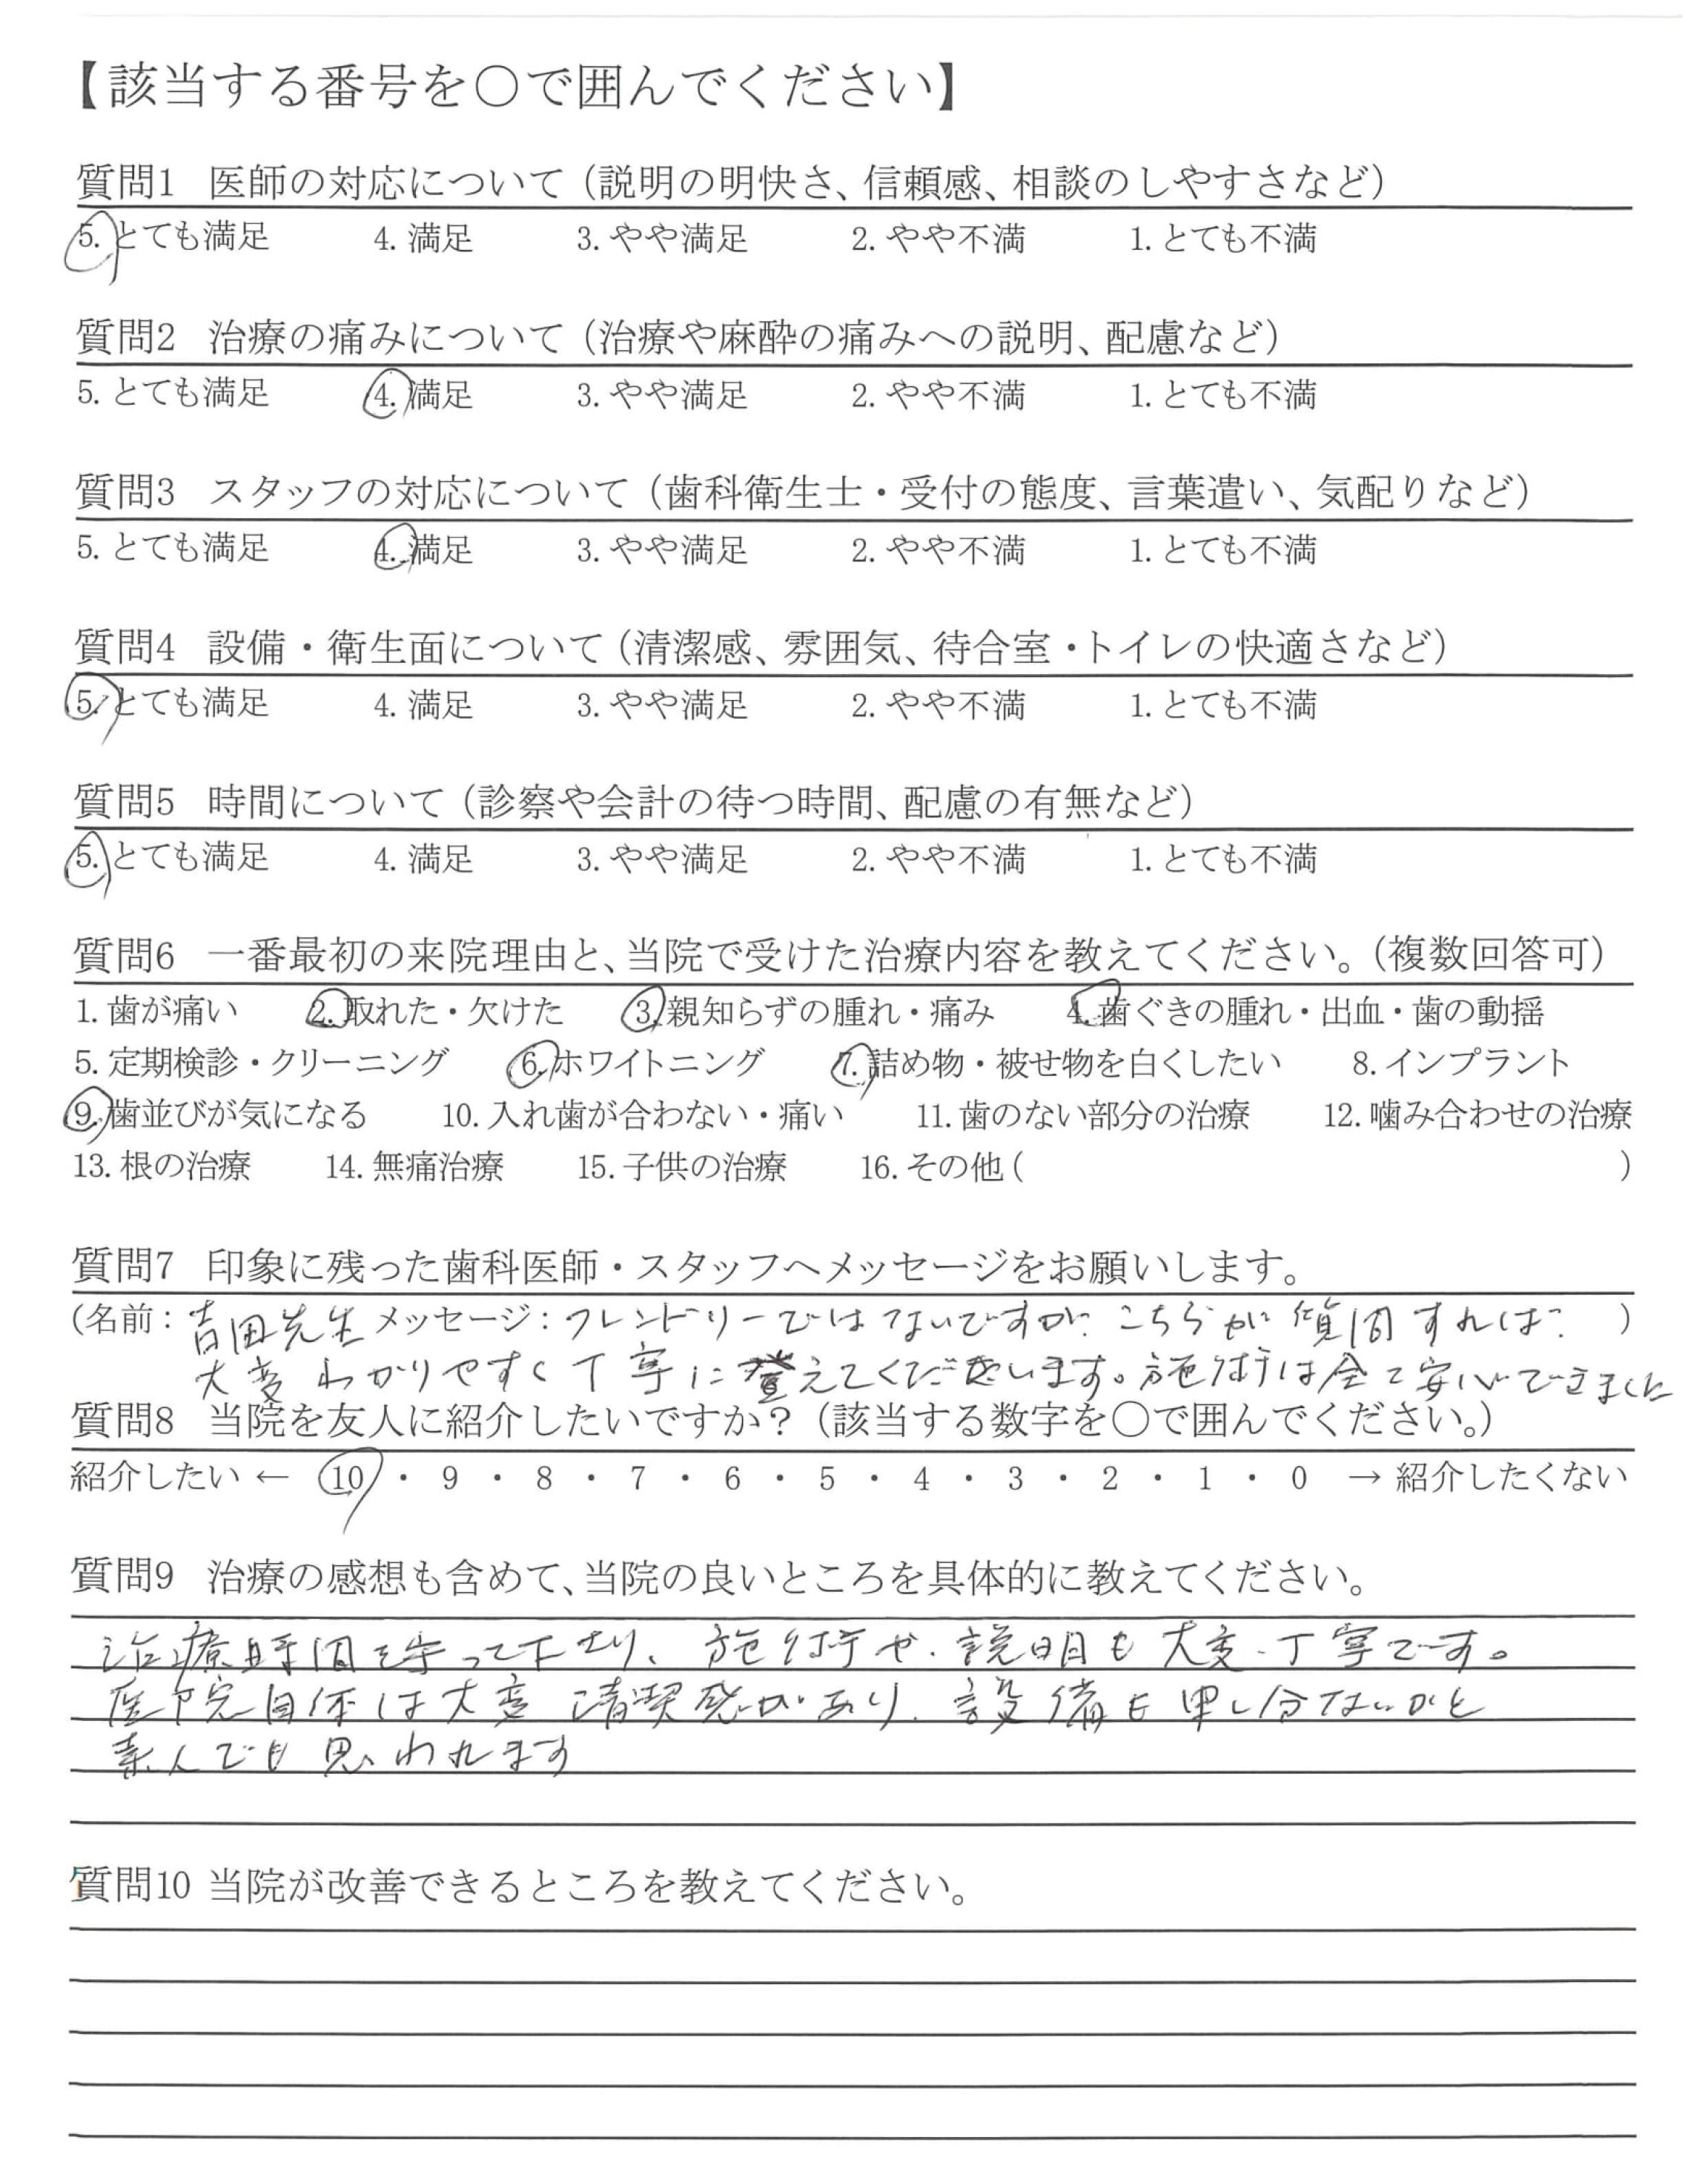 【該当する番号を○で囲んでください】
質問1 医師の対応について（説明の明快さ、信頼感、相談のしやすさなど）
5.とても満足 4.満足 3.やや満足 2.やや不満 1.とても不満
質問2 治療の痛みについて（治療や麻酔の痛みへの説明、配慮など）
5.とても満足 4.満足 3.やや満足 2.やや不満 1.とても不満
質問3 スタッフの対応について（歯科衛生士・受付の態度、言葉遣い、気配りなど）
5.とても満足 4.満足 3.やや満足 2.やや不満 1.とても不満
質問4 設備・衛生面について（清潔感、雰囲気、待合室・トイレの快適さなど）
5.とても満足 4.満足 3.やや満足 2.やや不満 1.とても不満
質問5 時間について（診察や会計の待つ時間、配慮の有無など）
5.とても満足 4.満足 3.やや満足 2.やや不満 1.とても不満
質問6 一番最初の来院理由と、当院で受けた治療内容を教えてください。（複数回答可）
1.歯が痛い 2.取れた・欠けた 3.親知らずの腫れ・痛み 4.歯ぐきの腫れ・出血・歯の動揺
5.定期検診・クリーニング 6.ホワイトニング 7.詰め物・被せ物を白くしたい 8.インプラント
9.歯並びが気になる 10.入れ歯が合わない・痛い 11.歯のない部分の治療 12.噛み合わせの治療
13.根の治療 14.無痛治療 15.子供の治療 16.その他（ ）
質問7 印象に残った歯科医師・スタッフへメッセージをお願いします。
（名前：吉田先生 メッセージ：フレンドリーではないですが こちらが質問すれば ）
大変わかりやすく丁寧に答えてくださいます。施術は全て安心できました
質問8 当院を友人に紹介したいですか？（該当する数字を○で囲んでください。）
紹介したい ← 10・9・8・7・6・5・4・3・2・1・0 → 紹介したくない
質問9 治療の感想も含めて、当院の良いところを具体的に教えてください。
治療時間を守って下さり、施術や、説明も大変、丁寧です。
医院自体は大変清潔感があり、設備も申し分ないかと
素人でも思われます
質問10 当院が改善できるところを教えてください。